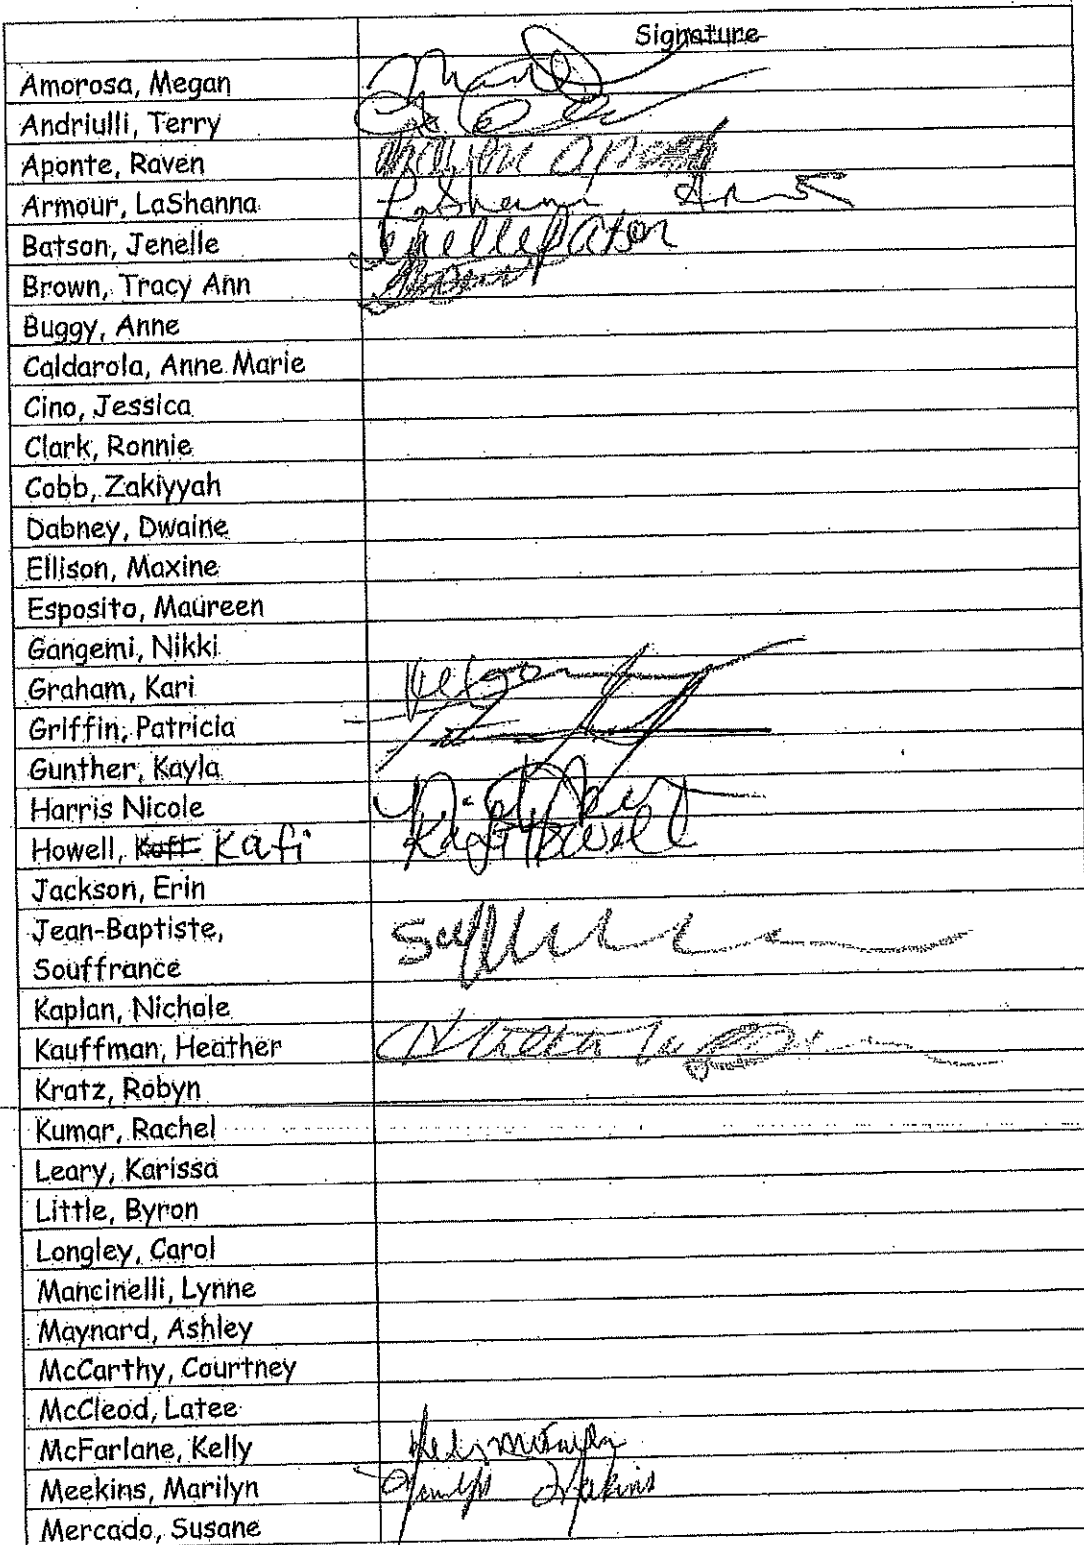 Signature
Amorosa, Megan
Andriulli, Terry
Aponte, Raven
Armour, LaShanna LaShanna
Batson, Jenelle Jenelle Batson
Brown, Tracy Ann
Buggy, Anne
Caldarola, Anne Marie
Cino, Jessica
Clark, Ronnie
Cobb, Zakiyyah
Dabney, Dwaine
Ellison, Maxine
Esposito, Maureen
Gangemi, Nikki
Graham, Kari
Griffin, Patricia
Gunther, Kayla
Harris Nicole
Howell, Kafi Kafi Howell
Jackson, Erin
Jean-Baptiste,
Souffrance
Kaplan, Nichole
Kauffman, Heather
Kratz, Robyn
Kumar, Rachel
Leary, Karissa
Little, Byron
Longley, Carol
Mancinelli, Lynne
Maynard, Ashley
McCarthy, Courtney
McCleod, Latee
McFarlane, Kelly
Meekins, Marilyn Marilyn Meekins
Mercado, Susane